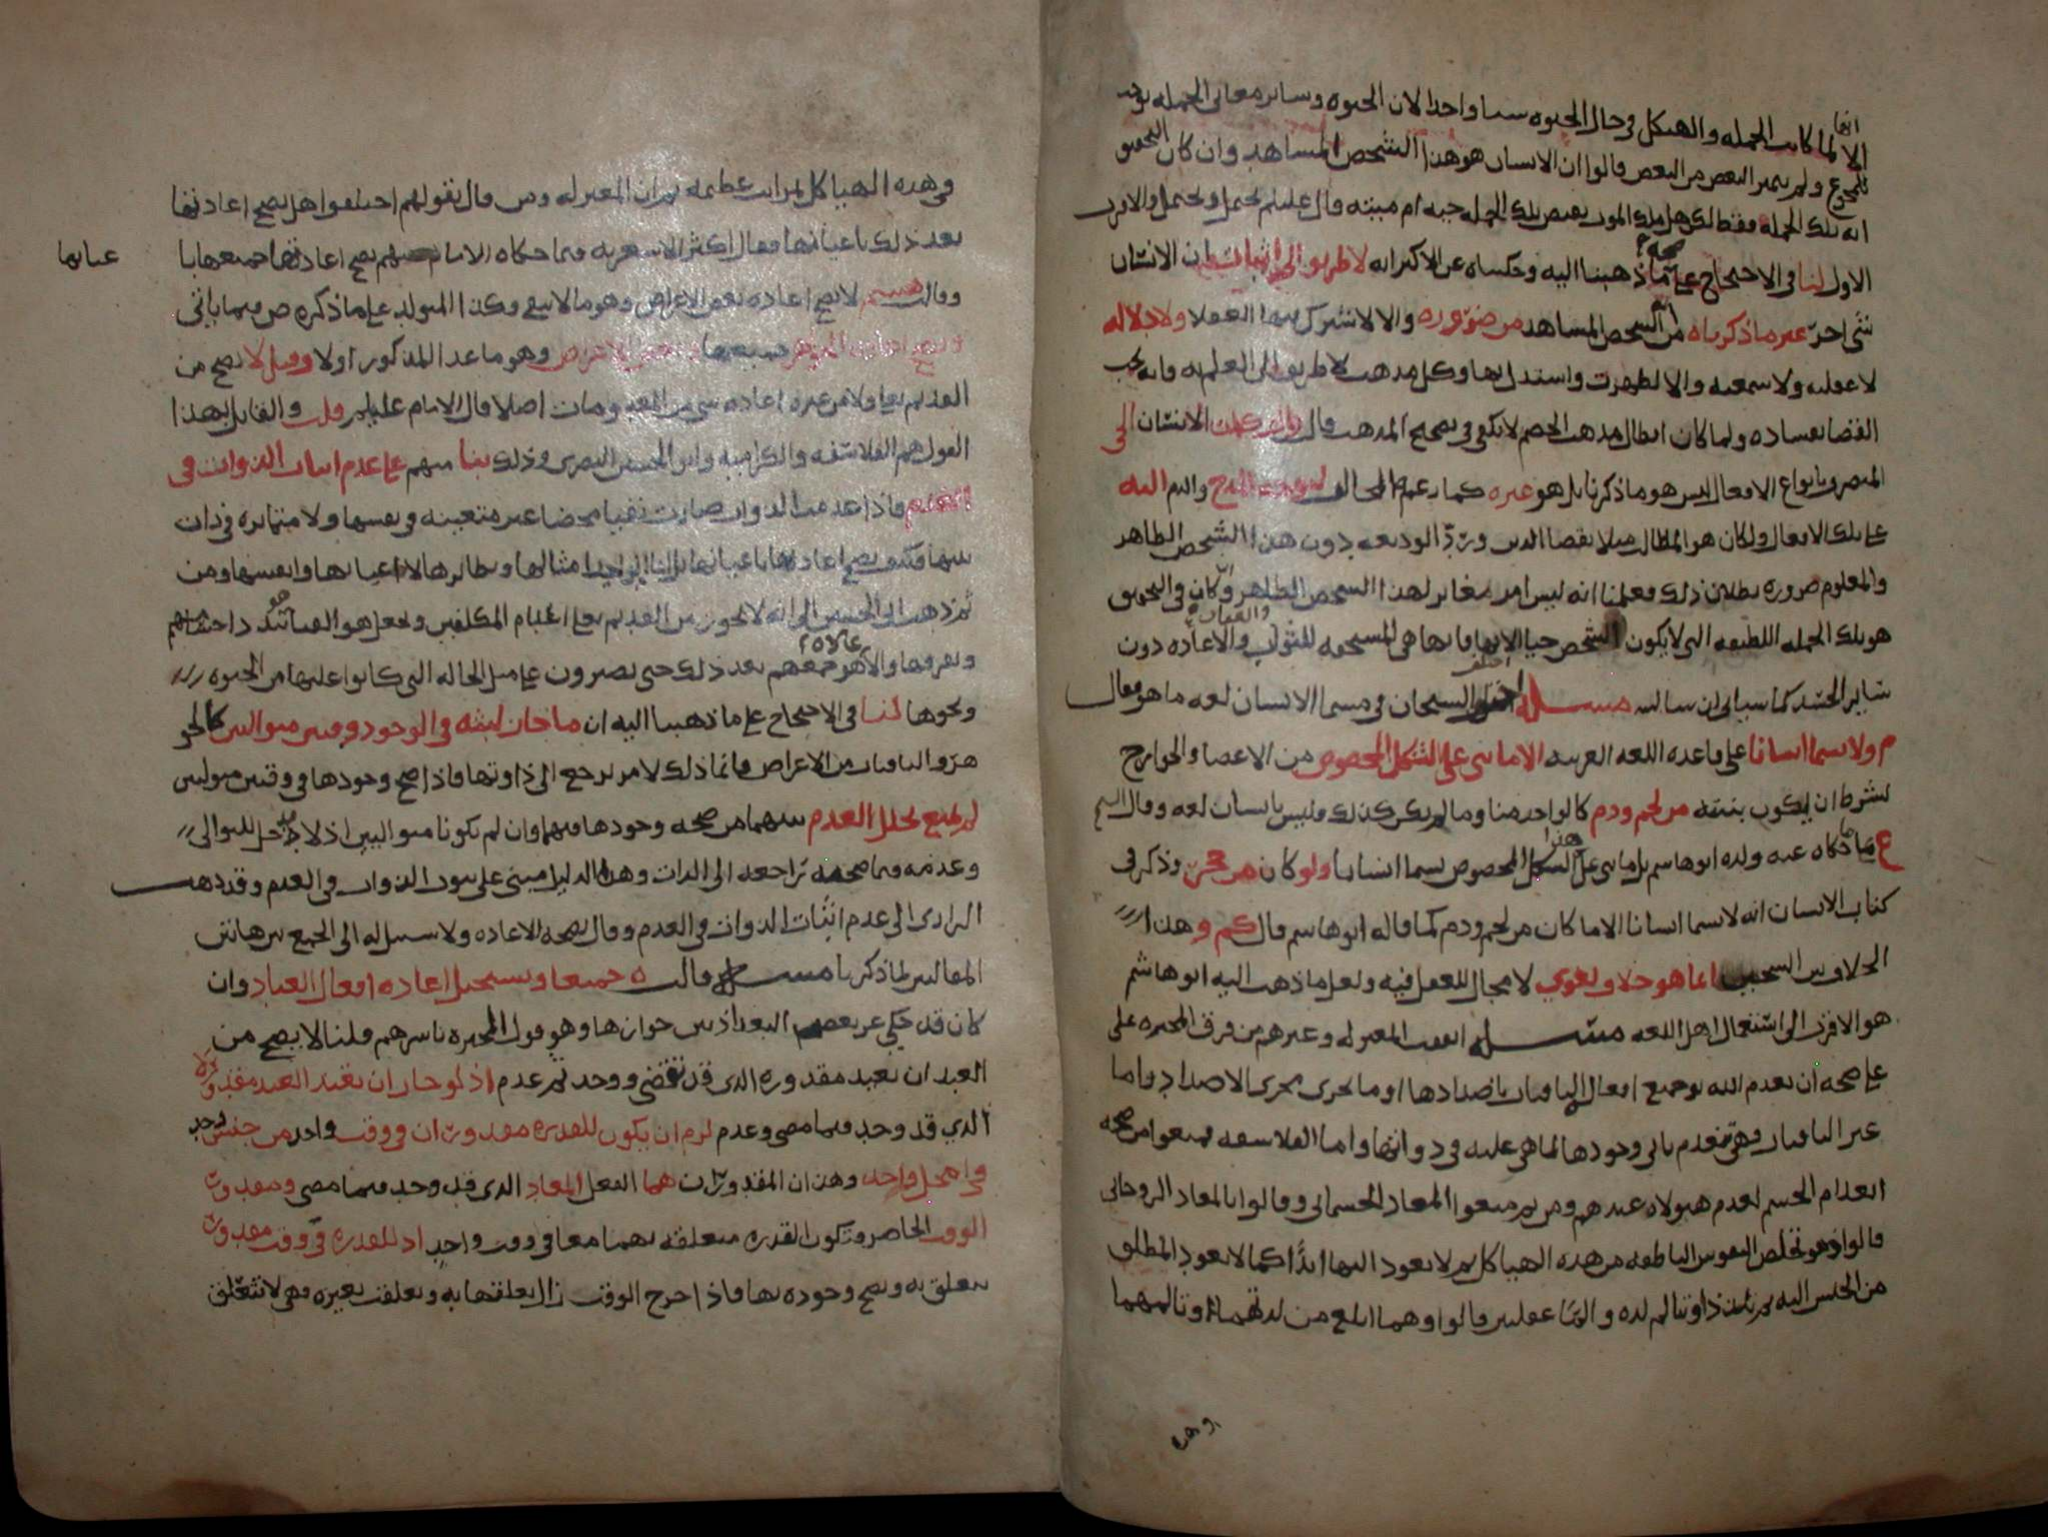 انها
الا لما كانت الجمله والهيكل في حال الحيوه سببا واحدا لان الحيوه وساير معاني الجمله توجد
للمجموع ولم يتميز البعض من البعض قالوا ان الانسان هو هذا الشخص المشاهد وان كان التحقيق
انه تلك الجملة فقط لكن هل بعد الموت بعض تلك الجمله حيه ام ميته قال عليلم يحتمل ويحتمل والاقرب
الاول لنا في الاحتجاج على صحة ما ذهبنا اليه وحكيناه عن الاكثر انه لا طريق الى اثبات الانسان
شي اخر غير ما ذكرناه من الشخص المشاهد من ضروره والا لاشترك فيها العقلا ولا دلاله
لا عقليه ولا سمعيه والا لظهرت واستدل بها وكل مذهب لا طريق الى العلم به فانه يجب
القضا بفساده ولما كان ابطال مذهب الخصم لا يكفي في تصحيح المذهب قال الانسان الحي
المتصرف بانواع الافعال ليس هو ما ذكرنا بل هو غيره كما زعم المخالف لتوجه المدح والذم اليه
على تلك الافعال ولكان هو المطالب مثلا بقضا الدين وردّ الوديعه دون هذا الشخص الظاهر
والمعلوم ضروره بطلان ذلك فعلمنا انه ليس امر مغاير لهذا الشخص الظاهر وان كان في التحقيق
هو تلك الجمله اللطيفه التي لا يكون الشخص حيا الا بها فانها هي المستحقه للثواب والعقاب والاعاده دون
ساير الجسد كما سياتي ان شا الله مسئله اختلف الشيخان في مسما الانسان لغه ما هو فقال
م ولا يسما انسانا على قاعده اللغه العربيه الا ما بني على الشكل المخصوص من الاعضا والجوارح
بشرط ان يكون بنيته من لحم ودم كالواحد منا وما لم يكن كذلك فليس بانسان لغه وقال الشيخ
ع فيما حكاه عنه ولده ابو هاشم بل ما بني على هذا الشكل المخصوص يسما انسانا ولو كان من حجر وذكر في
كتاب الانسان انه لا يسما انسانا الا ما كان من لحم ودم كما قاله ابو هاشم قال وهذا
الخلاف بين الشيخين انما هو خلاف لغوي لا مجال للعقل فيه ولعل ما ذهب اليه ابو هاشم
هو الاقرب الى استعمال اهل اللغه مسئله اتفقت المعتزله وغيرهم من فرق المجبره على
على صحه ان يعدم الله تعالى جميع افعال الباقيات باضدادها او ما يجري مجرى الاضداد واما
غير الباقيات فهي تنعدم ثاني وجودها لما هي عليه في ذواتها واما الفلاسفه فمنعوا من صحه
انعدام الجسم لعدم هيولاه عندهم ومن ثم منعوا المعاد الجسماني وقالوا بالمعاد الروحاني
قالوا وهو تخلص النفوس الناطقه من هذه الهياكل ثم لا يعود اليها ابدًا كما لا يعود المطلق
من الحبس اليه ثم يثبت ذا وتا لم لذه والما عقليين قالوا وهما ابلغ من لذتهما وتالمهما
او هذه
في هذه الهياكل بمراتب عظيمه ثم ان المعتزله ومن قال بقولهم اختلفوا هل يصح اعادتها
بعد ذلك باعيانها فقال اكثر الاشعريه فيما حكاه الامام عنهم يصح اعادتها جميعها با
عيانها
وقالت لا يصح اعاده بعض الاعراض وهو ما لا يبقى وكذا المتولد على ما ذكره ص فيما ياتي
ويصح اعاده الجواهر جميعها وبعض الاعراض وهو ما عدا المذكور اولا وقيل لا يصح من
القديم تعالى ولا من غيره اعاده شي من المعدومات اصلا قال الامام عليلم قلت والقايل بهذا
القول هم الفلاسفه والكراميه وابو الحسين البصري وذلك بنا منهم على عدم اثبات الذوات في
العدم فاذا عدمت الذوات صارت نفيا محضا غير متعينه في نفسها ولا متمايزه في ذات
بينها فكيف يصح اعادتها باعيانها بل انما يوجد امثالها ونظايرها لا اعيانها وانفسها ومن
ثم ذهب ابو الحسين الى انه لا يجوز من القديم تعالى اعدام المكلفين وجعل هو الفنا تبدد اجسامهم
وتفرقها والله هو جمعهم بعد ذلك حتى يصيرون على مثل الحاله التي كانوا عليها من الحيوه
ونحوها لنا في الاحتجاج على ما ذهبنا اليه ان ما جاز لبثه في الوجود وقتين متواليين كالجو
هر والباقيات من الاعراض فانما ذلك لامر يرجع الى ذاوتها فاذا صح وجودها في وقتين متوليين
لم يمنع تخلل العدم بينهما من صحه وجودها فيهما وان لم يكونا متواليين اذ لا دخل للتوالي
وعدمه فيما صحته تراجعه الى الذات وهذا الدليل مبني على ثبوت الذوات في العدم وقد ذهب
الرازي الى عدم اثبات الذوات في العدم وقال بصحه الاعاده ولا سبيل له الى الجمع بين هاتين
المقالتين لما ذكرنا مسئله قالت ه جميعا ويستحيل اعاده افعال العباد وان
كان قد حكي عن بعض البغداذيين جوازها وهو قول المجبره باسرهم قلنا لا يصح من
العبد ان يعيد مقدوره الذي قد تقضى ووجد ثم عدم اذ لو جاز ان يعيد العبد مقدوره
الذي قد وجد فيما مضى وعدم لزم ان يكون للقدره مقدوران في وقت واحد من جنس واحد
في محل واحد وهذان المقدوران هما الفعل المعاد الذي قد وجد فيما مضى ومقدور
الوقت الحاضر وتكون القدره متعلقه بهما معا في وقت واحد اذ للقدره في كل وقت مقدور
يتعلق به ويصح وجوده بها فاذا خرج الوقت زال تعلقها به وتعلقت بغيره وهي لا تتعلق